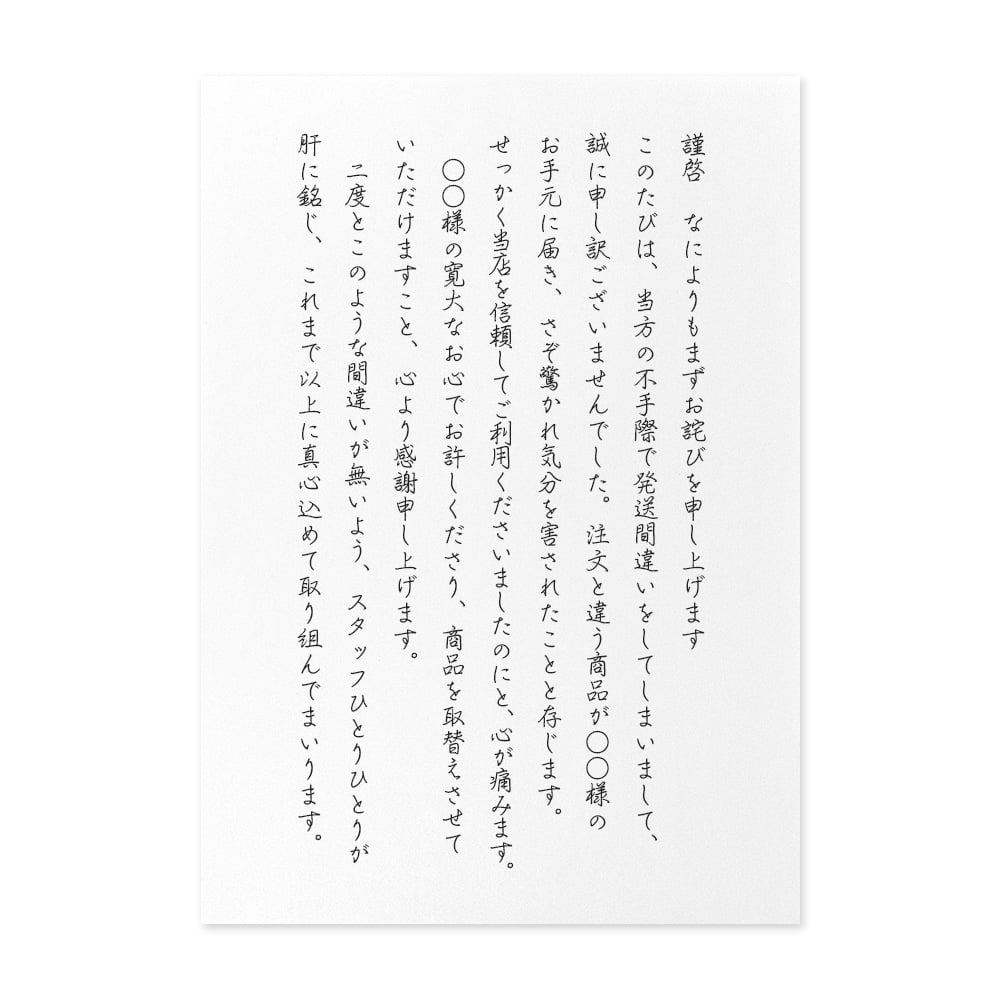 謹啓　なによりもまずお詫びを申し上げます
このたびは、当方の不手際で発送間違いをしてしまいまして、
誠に申し訳ございませんでした。注文と違う商品が〇〇様の
お手元に届き、さぞ驚かれ気分を害されたことと存じます。
せっかく当店を信頼してご利用くださいましたのにと、心が痛みます。
〇〇様の寛大なお心でお許しくださり、商品を取替えさせて
いただけますこと、心より感謝申し上げます。
二度とこのような間違いが無いよう、スタッフひとりひとりが
肝に銘じ、これまで以上に真心込めて取り組んでまいります。